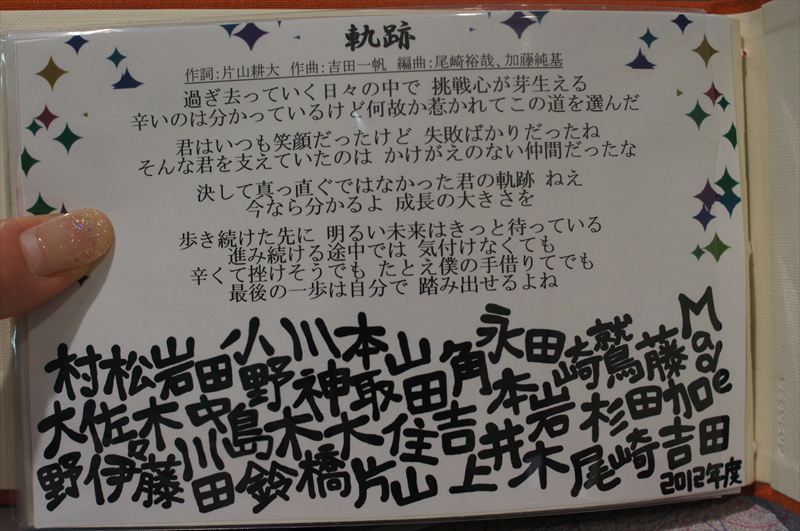 軌跡
作詞:片山耕大 作曲:吉田一帆 編曲:尾崎裕哉、加藤純基
過ぎ去っていく日々の中で 挑戦心が芽生える
辛いのは分かっているけど何故か惹かれてこの道を選んだ
君はいつも笑顔だったけど 失敗ばかりだったね
そんな君を支えていたのは かけがえのない仲間だったな
決して真っ直ぐではなかった君の軌跡 ねえ
今なら分かるよ 成長の大きさを
歩き続けた先に 明るい未来はきっと待っている
進み続ける途中では 気付けなくても
辛くて挫けそうでも たとえ僕の手借りてでも
最後の一歩は自分で 踏み出せるよね
村松岩田小野川神本取山田角永本田崎鷲藤Made
大佐々木中川島木大住吉井岩杉田加
野伊藤田鈴橋片山上木尾崎吉田
2012年度